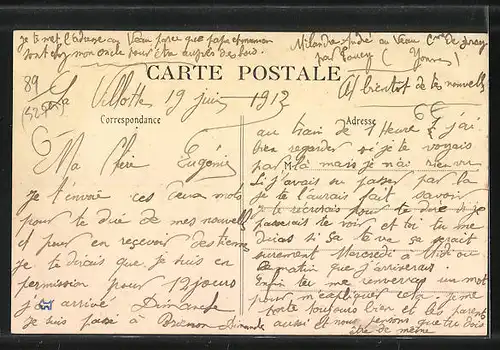 je te met l'adresse au Veau parce que papa et maman
sont chez mon oncle pour être auprès des bois.
au Veau Cne de
par (Yonne)
A bientot de tes nouvelles
CARTE POSTALE
89
Villotte 19 juin 1912
Correspondance
Adresse
Ma Chère Eugénie
je t'envoie ces deux mots
pour te dire de mes nouvelles
et pour en reçevoir des tiennes
je te dirais que je suis en
permission pour 12 jours
j'ai arrivé Dimanche
je suis passé à Brienon Dimanche
au train de 1 Heure j'ai
bien regarder si je te voyais
par là mais je n'ai rien vu
Si j'avais su passer par la
je te l'aurais fait savoir
je te récrirais pour te dire si je
passerais te voir et toi tu me
diras si sa te va ce serait
surement Mercredi à Midi ou
le matin que j'arriverai.
Enfin tu me renverras un mot
pour m'expliquer cela je me
porte toujours bien et les parents
aussi et nous pensons que tu dois
être de même